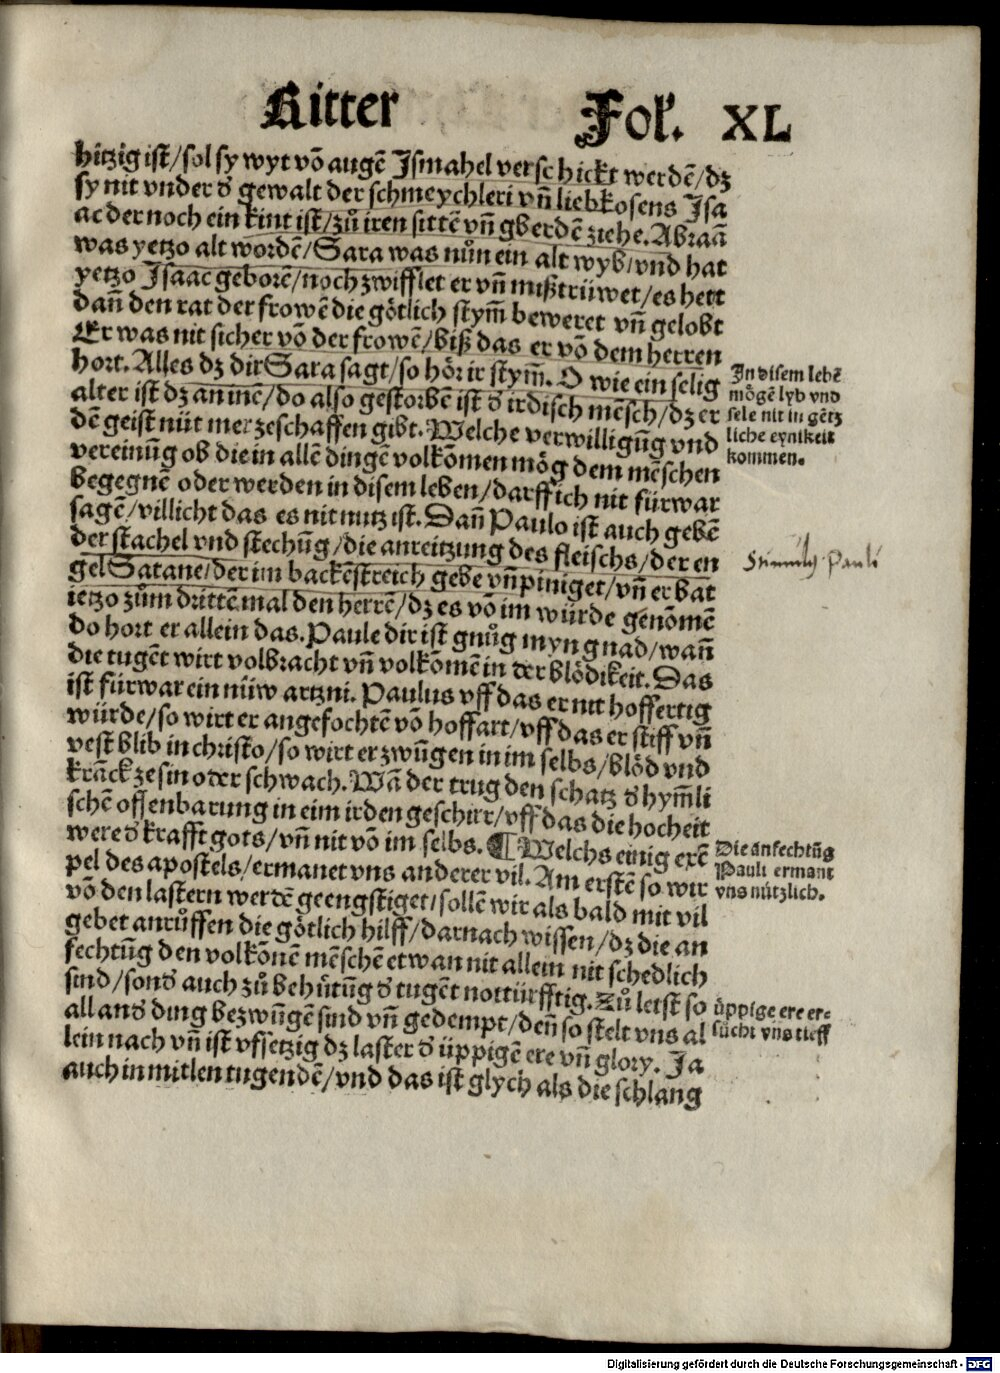 Ritter Fol. XL
hitzig ist/sol sy wyt võ augẽ Jsmahel verschickt werdẽ/dz
sy nit vnder d̕ gewalt der schmeychleri vñ liebkosens Jsa
ac der noch ein kint ist/zů iren sittẽ vñ gberdẽ ziehe. Abraã
was yetzo alt wordẽ/Sara was nůn ein alt wyb/vnd hat
yetzo Jsaac geborẽ/noch zwifflet er vñ mißtrüwet/es hett
dañ den rat der frowẽ die götlich stym̃ beweret vñ gelobt
Er was nit sicher võ der frowẽ/biß das er võ dem herren
hort. Alles dz dir Sara sagt/so hör ir stym̃. O wie ein selig
alter ist dz an inẽ/do also gestorbẽ ist d̕ irdisch mẽsch/dz er
dẽ geist nüt mer zeschaffen gibt. Welche verwilligũg vnd
vereinũg ob die in allẽ dingẽ volkõmen mög dem mẽschen
begegnẽ oder werden in disem leben/darff ich nit fürwar
sagẽ/villicht das es nit nutz ist. Dañ Paulo ist auch gebẽ
der stachel vnd stechũg/die anreitzung des fleischs/der en
gel Satane/der im backẽstreich gebe vñ piniget/vñ er bat
ietzo zům drittẽ mal den herrẽ/dz es võ im würde genõmẽ
do hort er allein das. Paule dir ist gnůg myn gnad/wañ
die tugẽt wirt volbracht vñ volkõmẽ in der blödikeit. Das
ist fürwar ein nüw artzni. Paulus vff das er nit hoffertig
würde/so wirt er angefochtẽ võ hoffart/vff das er stiff vñ
vest blib in christo/so wirt er zwũgen in im selbs/blöd vnd
krãck ze sin oder schwach. Wã der trug den schatz d̕ hym̃li
schẽ offenbarung in eim irden geschirr/vff das die hocheit
were d̕ krafft gots/vñ nit võ im selbs. ¶ Welchs einig exẽ
pel des apostels/ermanet vns anderer vil. Am erstẽ so wir
võ den lastern werdẽ geengstiget/sollẽ wir als bald mit vil
gebet anrůffen die götlich hilff/darnach wissen/dz die an
fechtũg den volkõnẽ mẽschẽ etwan nit allein nit schedlich
sind/sond̕ auch zů behütũg d̕ tugẽt nottürfftig. Zů letst so
all and̕ ding bezwũgẽ sind vñ gedempt/deñ so stelt vns al
lein nach vñ ist vfsetzig dz laster d̕ üppigẽ ere vñ glory. Ja
auch in mitlen tugendẽ/vnd das ist glych als die schlang
Jn disem lebẽ
mögẽ lyb vnd
sele nit in gẽtz
liche eynikeit
kommen.
Stimulus Pauli
Die anfechtũg
Pauli ermant
vns nützlich.
üppige ere er⸗
sůcht vns tieff
Digitalisierung gefördert durch die Deutsche Forschungsgemeinschaft - DFG